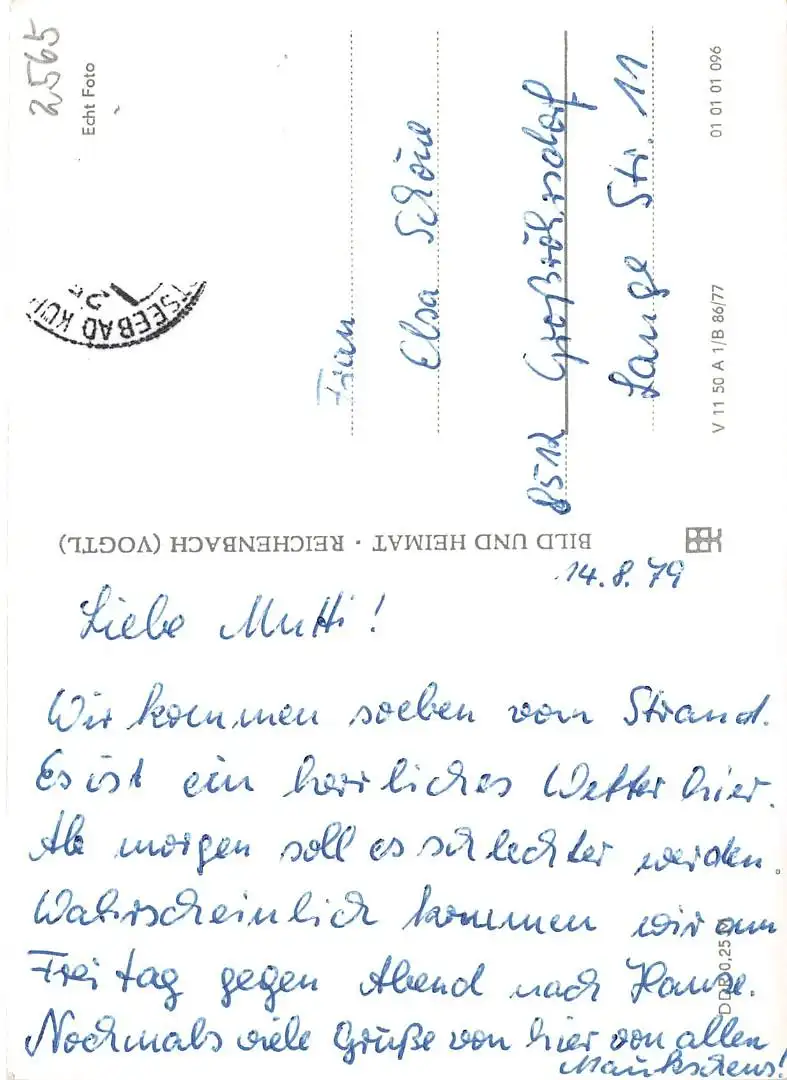 2565
Echt Foto
TSEEBAD
Frau
Elsa Schöne
8512 Großröhrsdorf
Lange Str. 11
01 01 01 096
V 11 50 A 1/B 86/77
BILD UND HEIMAT · REICHENBACH (VOGTL)
14.8.79
Liebe Mutti!
Wir kommen soeben vom Strand.
Es ist ein herrliches Wetter hier.
Ab morgen soll es schlechter werden.
Wahrscheinlich kommen wir am
Freitag gegen Abend nach Hause.
Nochmals viele Grüße von hier von allen
DDR 0,25 M